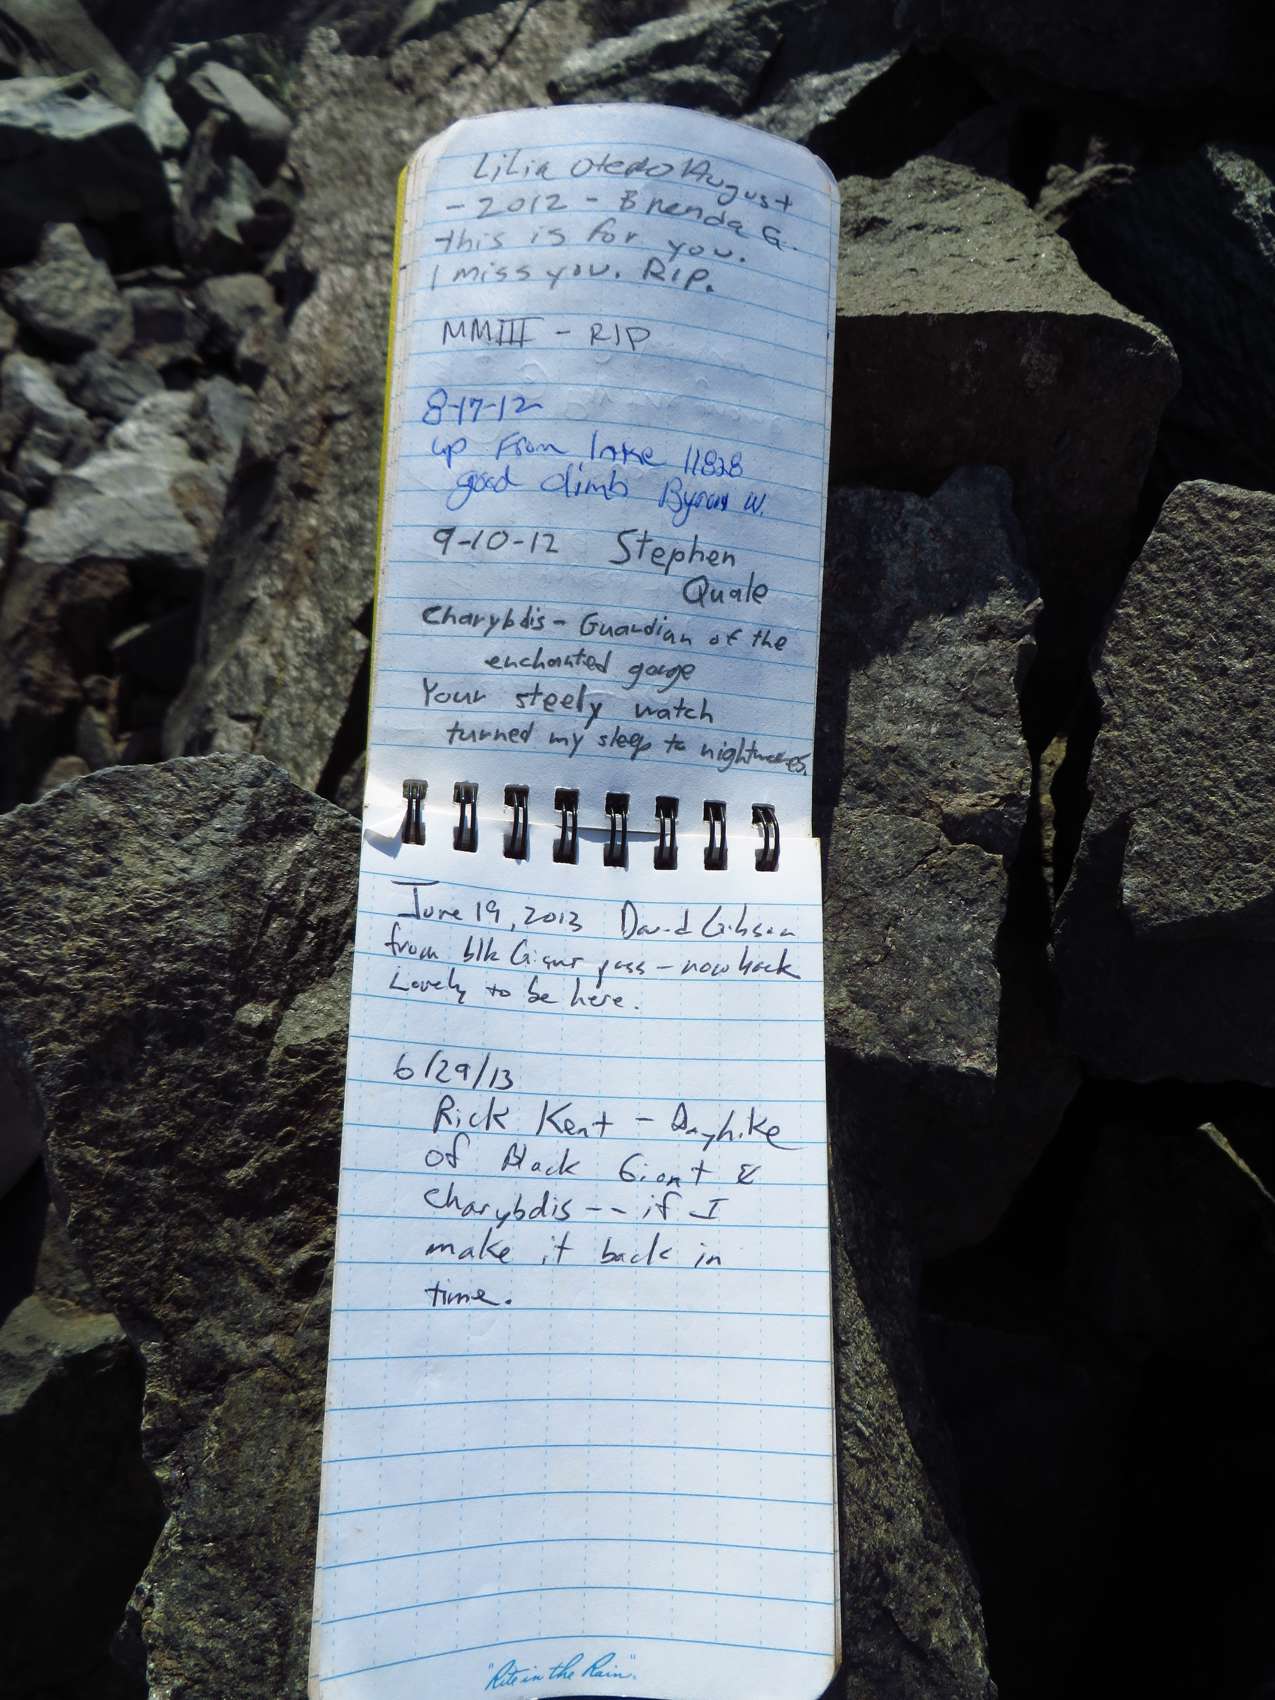 Lilia Otero August
- 2012 - Brenda G.
this is for you.
I miss you. RIP.
MMIII - RIP
8-17-12
up from lake 11828
good climb Byron W.
9-10-12 Stephen
Quale
Charybdis - Guardian of the
enchanted gorge
Your steely watch
turned my sleep to nightmares.
June 19, 2013 David Gibson
from blk Giant pass - now back
Lovely to be here.
6/29/13
Rick Kent - Dayhike
of Black Giant &
Charybdis -- if I
make it back in
time.
"Rite in the Rain"